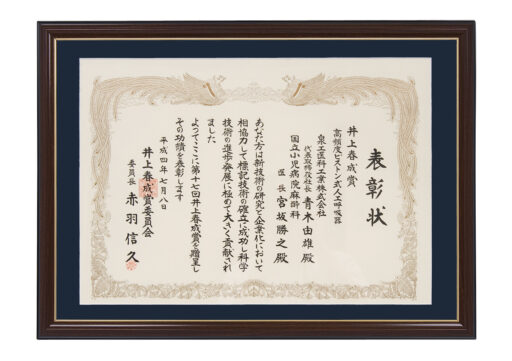 表彰状
井上春成賞
高頻度ピストン式人工呼吸器
泉工医科工業株式会社
代表取締役社長 青木由雄殿
国立小児病院麻酔科
医長 宮坂勝之殿
あなた方は新技術の研究と企業化において
相協力して標記技術の確立に成功し科学
技術の進歩発展に極めて大きく貢献され
ました
よってここに第十七回井上春成賞を贈呈し
その功績を表彰します
平成四年七月八日
井上春成賞委員会
委員長 赤羽信久